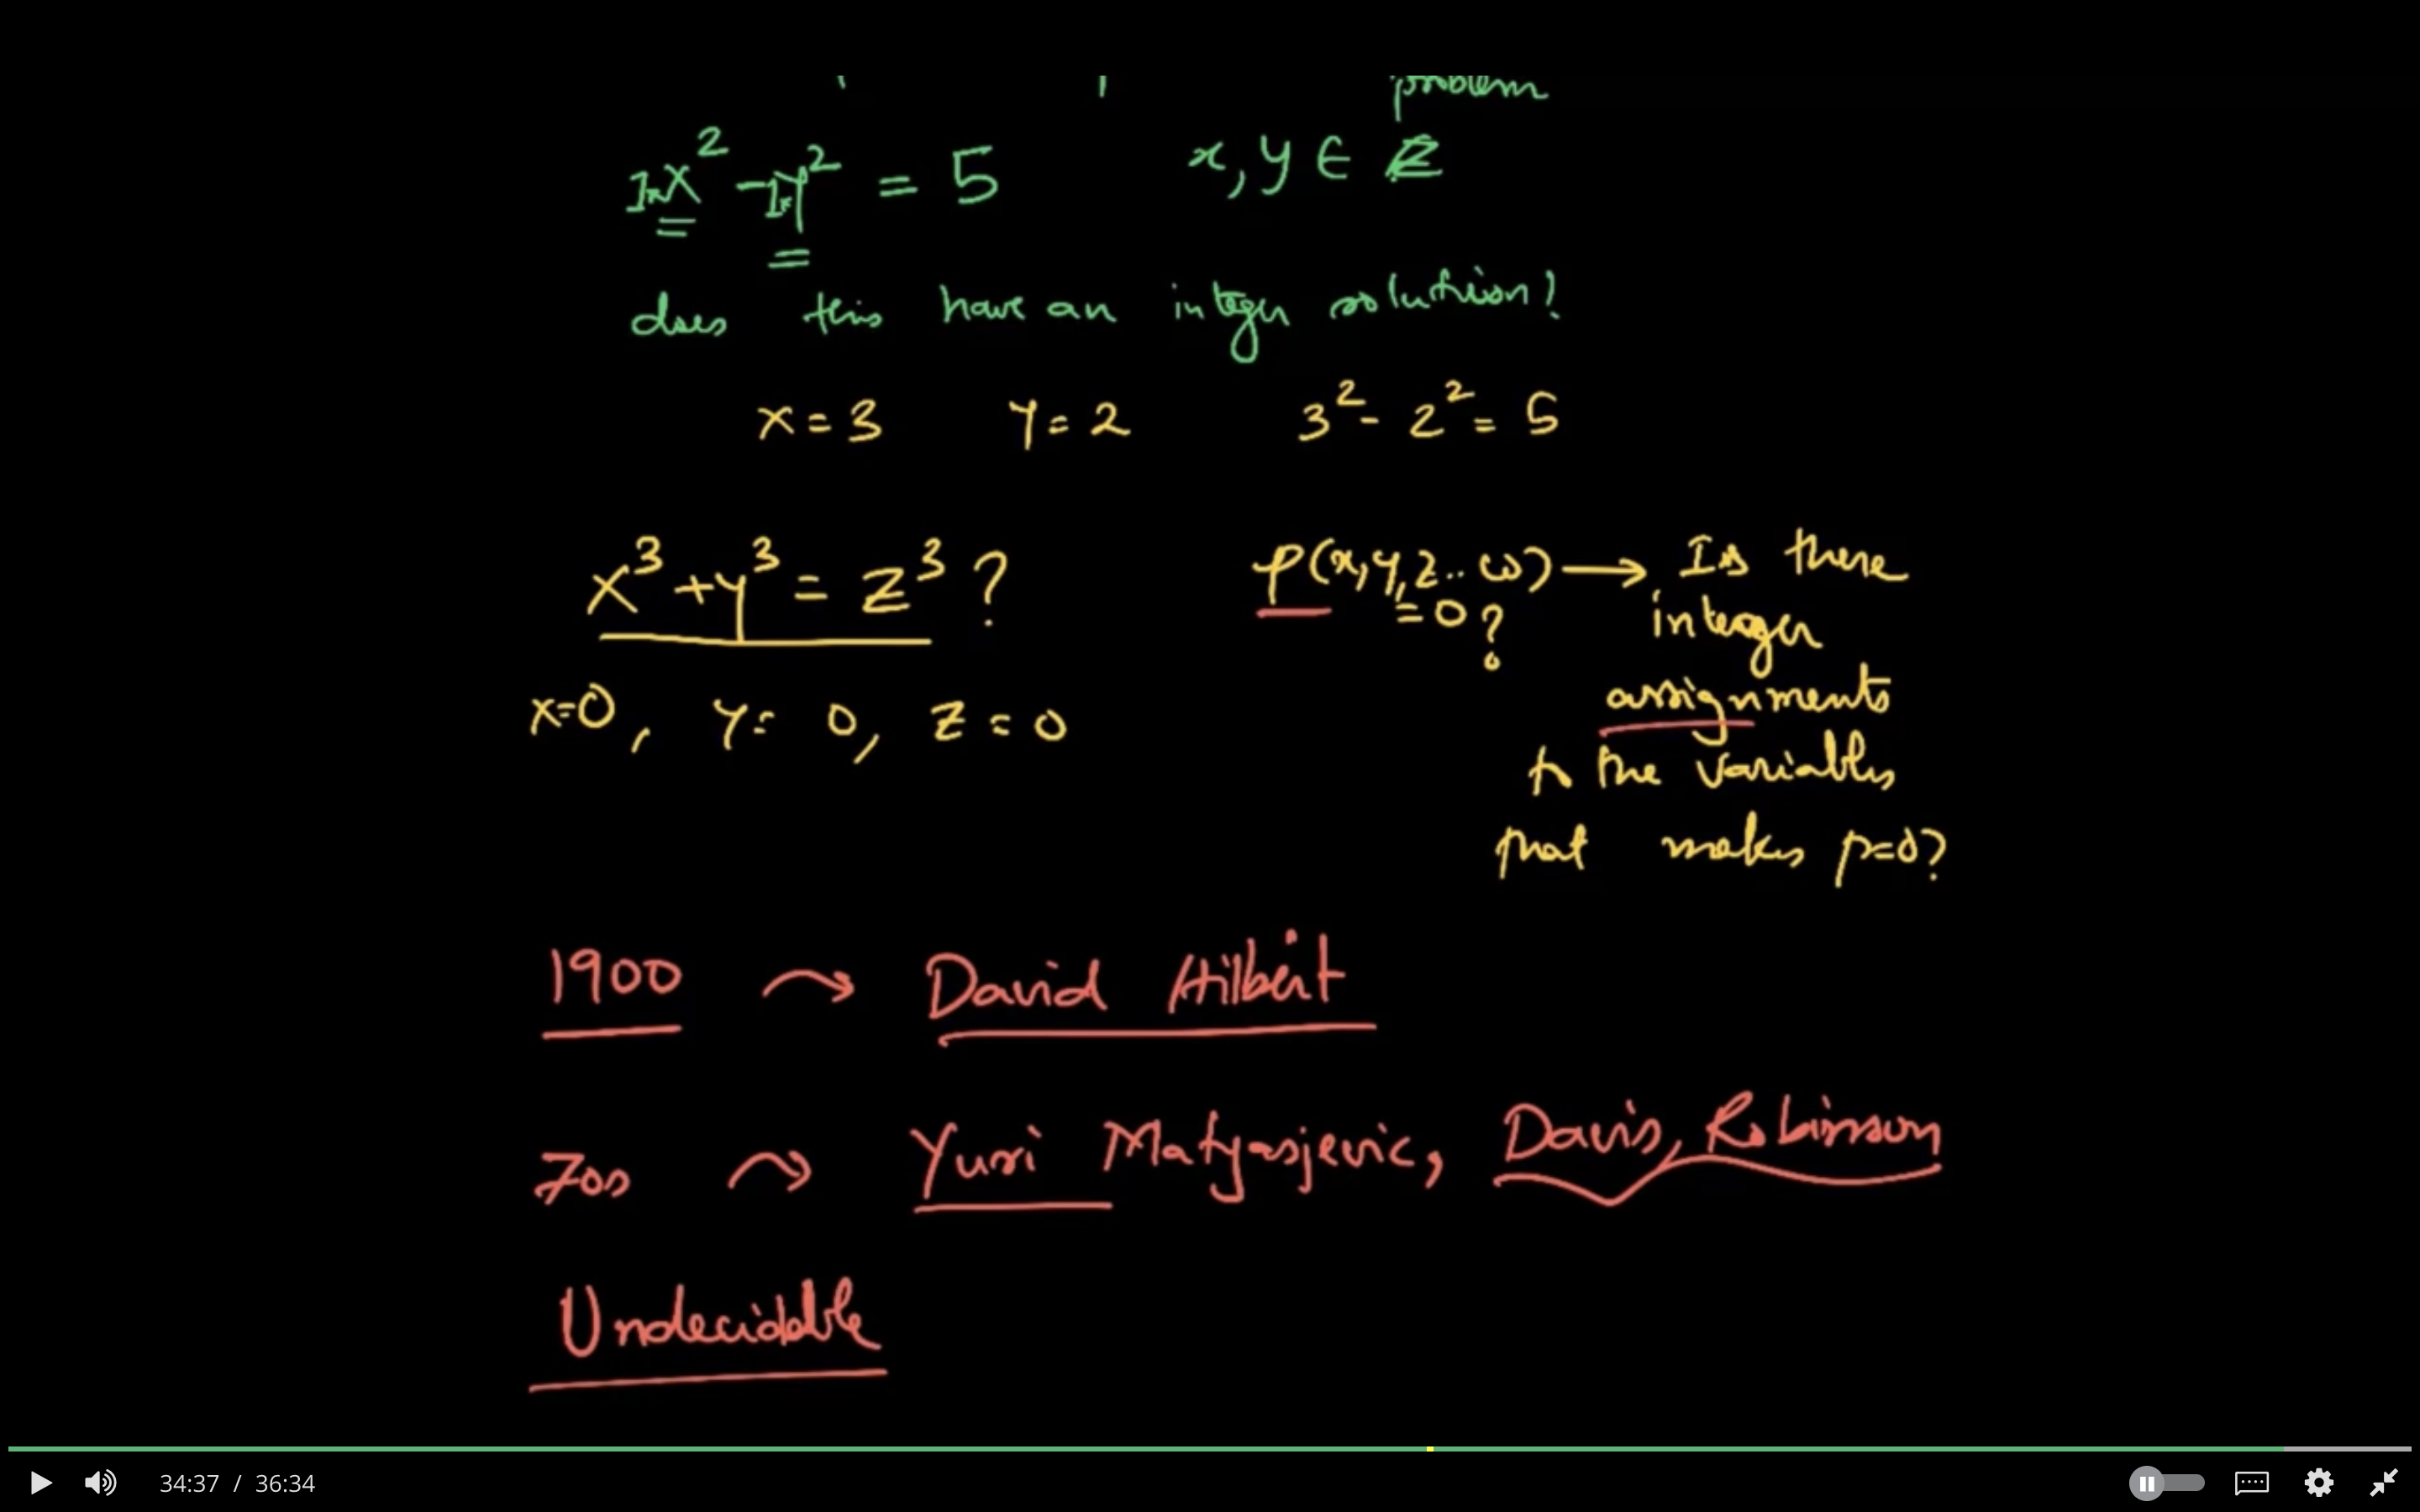 problem
1×x² - 1×y² = 5 x, y ∈ Z
does this have an integer solution?
x = 3 y = 2 3² - 2² = 5
x³ + y³ = z³ ?
x=0, y = 0, z = 0
p(x, y, z .. w) → Is there
= 0 ?
integer
assignments
to the variables
that makes p=0?
1900 → David Hilbert
70s → Yuri Matyasjevic, Davis, Robinson
Undecidable
34:37 / 36:34